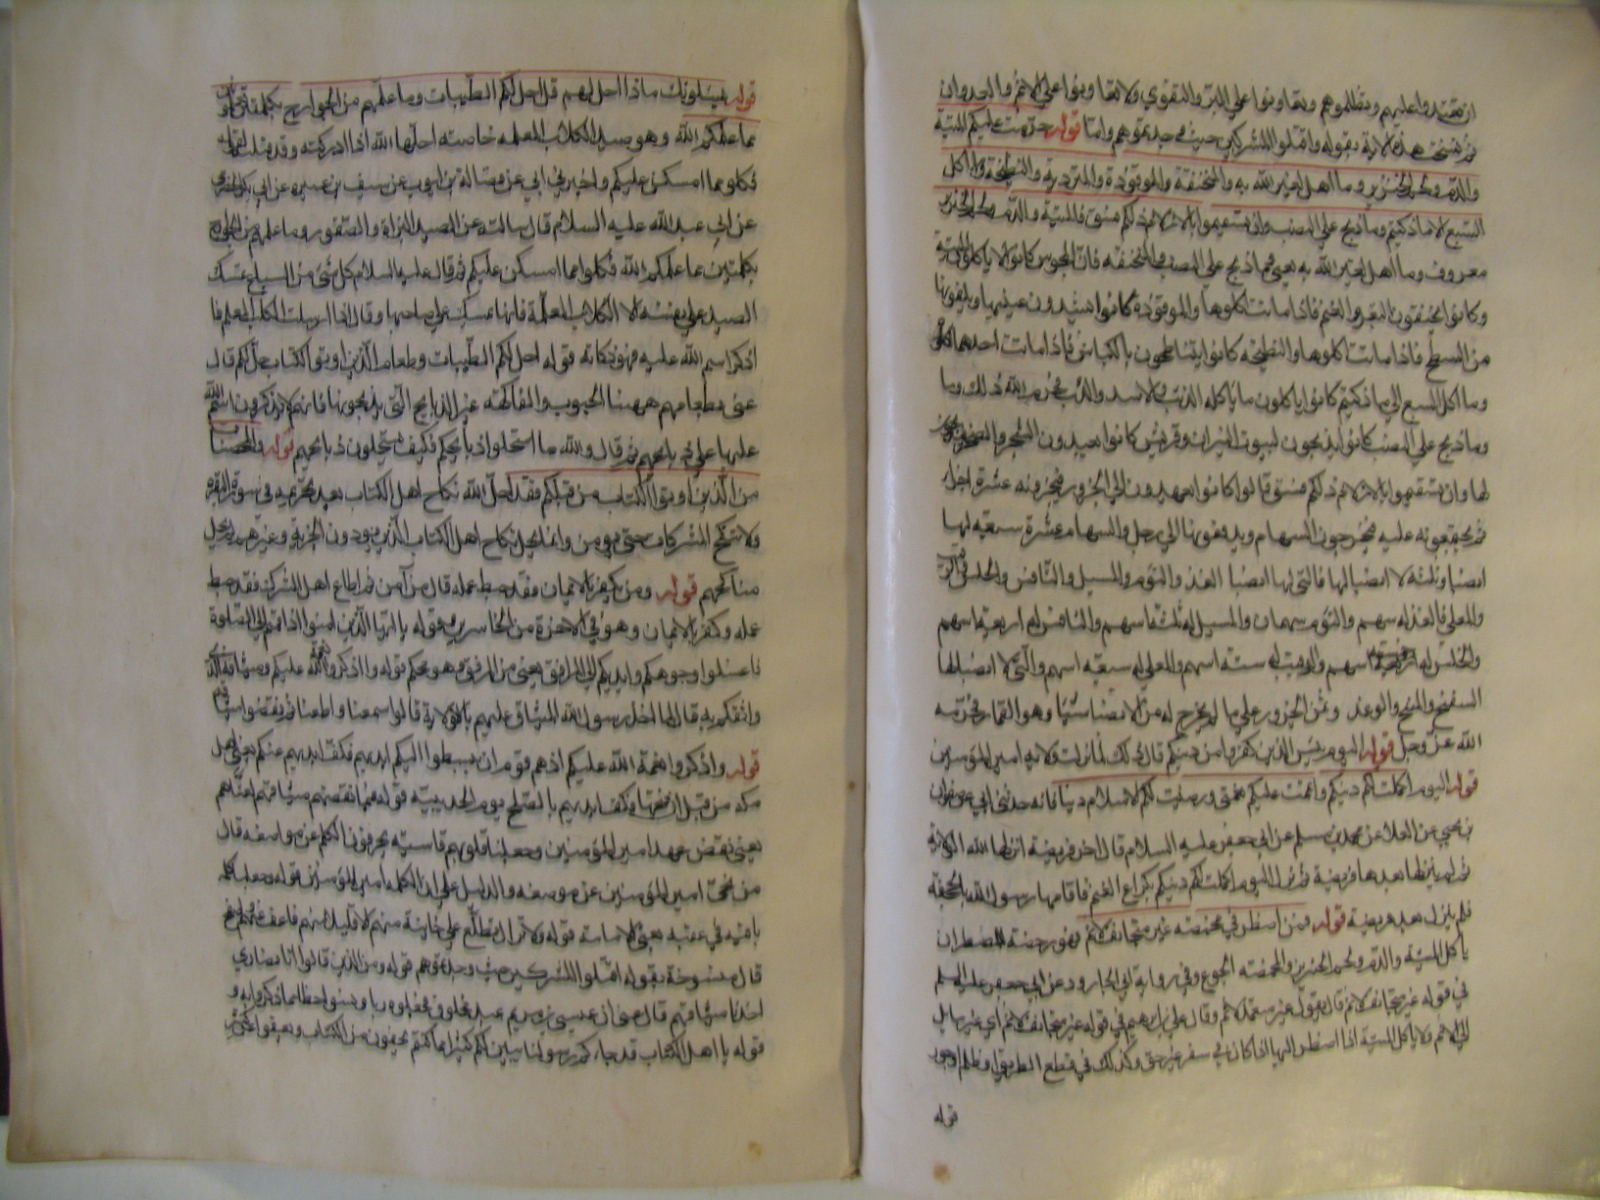 ان تعتدوا عليهم وتظلموهم وتعاونوا علي البر والتقوي ولا تعاونوا علي الاثم والعدوان
ثم نسخت هذه الاية بقوله واقتلوا المشركين حيث وجدتموهم واما قوله حرمت عليكم الميتة
والدم ولحم الخنزير وما اهل لغير الله به والمنخنقة والموقوذة والمتردية والنطيحة وما اكل
السبع الا ما ذكيتم وما ذبح علي النصب وان تستقسموا بالازلام ذلكم فسق فالميتة والدم ولحم الخنزير
معروف وما اهل لغير الله به يعني ما ذبح علي النصب والمنخنقة فان المجوس كانوا لا ياكلون الميتة
وكانوا يخنقون البقر والغنم فاذا ماتت اكلوها والموقوذة كانوا يشدون عينيها ويلقونها
من السطح فاذا ماتت اكلوها والنطيحة كانوا يتناطحون بالكباش فاذا ماتت احدهما اكلوها
وما اكل السبع الا ما ذكيتم كانوا ياكلون ما ياكله الذئب والاسد والدب فحرم الله ذلك وما
وما ذبح علي النصب كانوا يذبحون لبيوت النيران وقريش كانوا يعبدون الشجر والصخر
لها وان تستقسموا بالازلام ذلكم فسق قالوا كانوا يعمدون الي الجزور فيجزونه عشرة اجزاء
ثم يجتمعون عليه فيخرجون السهام ويدفعونها الي رجل والسهام عشرة سبعة لها
انصبا وثلثة لا انصبا لها فالتي لها انصبا الفذ والتوم والمسبل والنافس والحلس والرقيب
والمعلي فالفذ له سهم والتوم سهمان والمسبل له ثلثة اسهم والنافس له اربعة اسهم
والحلس له خمسة اسهم والرقيب له ستة اسهم والمعلي له سبعة اسهم والتي لا انصبا لها
السفيح والمنيح والوغد وثمن الجزور علي من لم يخرج له من الانصبا شيئا وهو القمار فحرمه
الله عز وجل قوله اليوم يئس الذين كفروا من دينكم قال ذلك لما نزلت ولاية امير المؤمنين
قوله اليوم اكملت لكم دينكم واتممت عليكم نعمتي ورضيت لكم الاسلام دينا فانه حدثني ابي عن صفوان
بن يحيي عن العلا عن محمد بن مسلم عن ابي جعفر عليه السلام قال اخر فريضة انزلها الله الولاية
ثم لم ينزل بعدها فريضة ثم نزل اليوم اكملت لكم دينكم بكراع الغميم فاقامها رسول الله بالجحفة
فلم ينزل بعدها فريضة قوله فمن اضطر في مخمصة غير متجانف لاثم فهو رخصة للمضطر ان
ياكل الميتة والدم ولحم الخنزير والمخمصة الجوع وفي رواية ابي الجارود عن ابي جعفر عليه السلم
في قوله غير متجانف لاثم قال يقول غير متعمد لاثم وقال علي بن ابراهيم في قوله غير متجانف لاثم اي غير مايل
الي الاثم ولا ياكل الميتة اذا اضطر اليها اذا كان في سفر غير حق وكذلك في قطع الطريق او ظلم او جور
قوله
قوله يسئلونك ماذا احل لهم قل احل لكم الطيبات وما علمتم من الجوارح مكلبين تعلمونهن
مما علمكم الله وهو صيد الكلاب المعلمة خاصة احلها الله اذا ادركته وقد قتله لقوله
فكلوا مما امسكن عليكم واخبرني ابي عن فضالة بن ايوب عن سيف بن عميرة عن ابي بكر الحضرمي
عن ابي عبد الله عليه السلام قال سالته عن الصيد البزاة والصقور وما علمتم من الجوارح
مكلبين مما علمكم الله فكلوا مما امسكن عليكم ثم قال عليه السلام كل شئ من السباع تمسك
الصيد علي نفسه الا الكلاب المعلمة فانها تمسك علي صاحبها وقال اذا ارسلت الكلب المعلم فا
اذكر اسم الله عليه فهو ذكاته قوله احل لكم الطيبات وطعام الذين اوتوا الكتاب حل لكم قال
عني بطعامهم ههنا الحبوب والفاكهة غير الذبايح التي يذبحونها فانهم لا يذكرون اسم الله
عليها علي ذبايحهم ثم قال والله ما استحلوا ذبايحكم فكيف تستحلون ذبايحهم قوله والمحصنات
من الذين اوتوا الكتاب من قبلكم فقد احل الله نكاح اهل الكتاب بعد تحريمه في سورة البقرة
ولا تنكحوا المشركات حتي يؤمن وانما يحل نكاح اهل الكتاب الذين يؤدون الجزية وغيرهم لم يحل
مناكحتهم قوله ومن يكفر بالايمان فقد حبط عمله قال من آمن ثم اطاع اهل الشرك فقد حبط
عمله وكفر بالايمان وهو في الاخرة من الخاسرين وقوله يا ايها الذين امنوا اذا قمتم الي الصلوة
فاغسلوا وجوهكم وايديكم الي المرافق يعني من المرفق وهو محكم قوله واذكروا نعمة الله عليكم وميثاقه الذي
واثقكم به قال لما اخذ رسول الله الميثاق عليهم بالولاية قالوا سمعنا واطعنا ثم نقضوا ميثاقهم
قوله واذكروا نعمة الله عليكم اذ هم قوم ان يبسطوا اليكم ايديهم فكف ايديهم عنكم يعني اهل
مكة من قبل ان فتحها وكف ايديهم بالصلح يوم الحديبية قوله فبما نقضهم ميثاقهم لعناهم
يعني نقض عهد امير المؤمنين وجعلنا قلوبهم قاسية يحرفون الكلم عن مواضعه قال
من نحي امير المؤمنين عن موضعه والدليل علي ان الكلمة امير المؤمنين قوله وجعلها كلمة
باقية في عقبه يعني الامامة قوله ولا تزال تطلع علي خائنة منهم الا قليلا منهم فاعف عنهم واصفح
قال منسوخة بقوله اقتلوا المشركين حيث وجدتموهم قوله ومن الذين قالوا انا نصاري
اخذنا ميثاقهم قال عني ان عيسي بن مريم عبد مخلوق فجعلوه ربا ونسوا حظا مما ذكروا به و
قوله يا اهل الكتاب قد جاءكم رسولنا يبين لكم كثيرا مما كنتم تخفون من الكتاب ويعفوا عن كثير